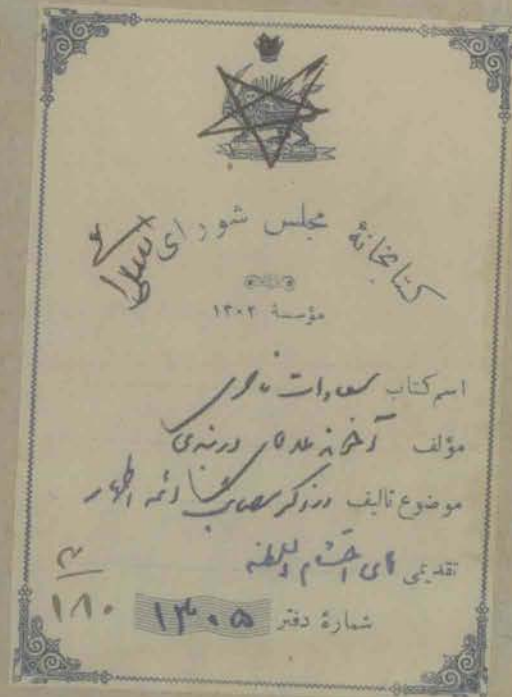 کتابخانهٔ مجلس شورای اسلامی
مؤسسهٔ ۱۳۰۲
اسم کتاب سعادات ناصری
مؤلف آخوند ملاآقای دربندی
موضوع تألیف در ذکر مصائب ائمه اطهار
تقدیمی آقای احتشام السلطنه
۱۸۰
شمارهٔ دفتر ۱۳۰۵۵